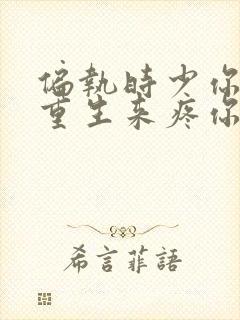 偏執時少你
重生来疼你
希言菲語